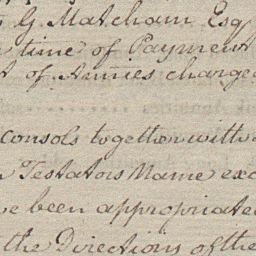 G. Matcham Esq
time of Payment
of Annies charge
consols together with
Testators Name exc
e been appropriate
the Directions of the